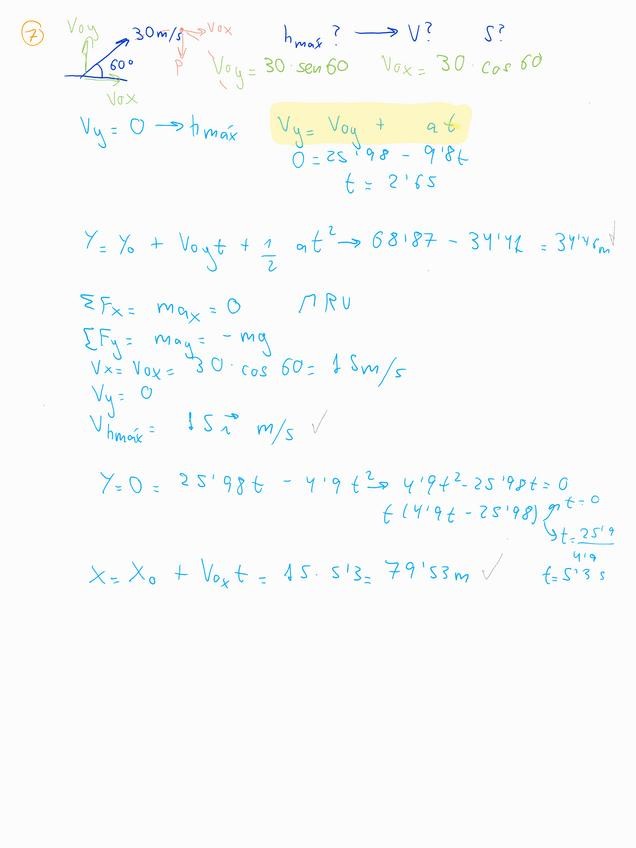 7 Voy 30 m/s Vox hmáx? → V? S?
60° P Voy = 30 · sen 60 Vox = 30 · cos 60
Vox
Vy = 0 → hmáx Vy = Voy + at
0 = 25'98 - 9'8t
t = 2'65
Y = Y₀ + Voyt + 1/2 at² → 68'87 - 34'41 = 34'46m
ΣFx = max = 0 MRU
ΣFy = may = -mg
Vx = Vox = 30 · cos 60 = 15m/s
Vy = 0
Vhmáx = 15 i⃗ m/s ✓
Y = 0 = 25'98t - 4'9t² → 4'9t² - 25'98t = 0
t(4'9t - 25'98) → t = 0
→ t = 25'9/4'9
X = X₀ + Voxt = 15 · 5'3 = 79'53m ✓ t = 5'3 s